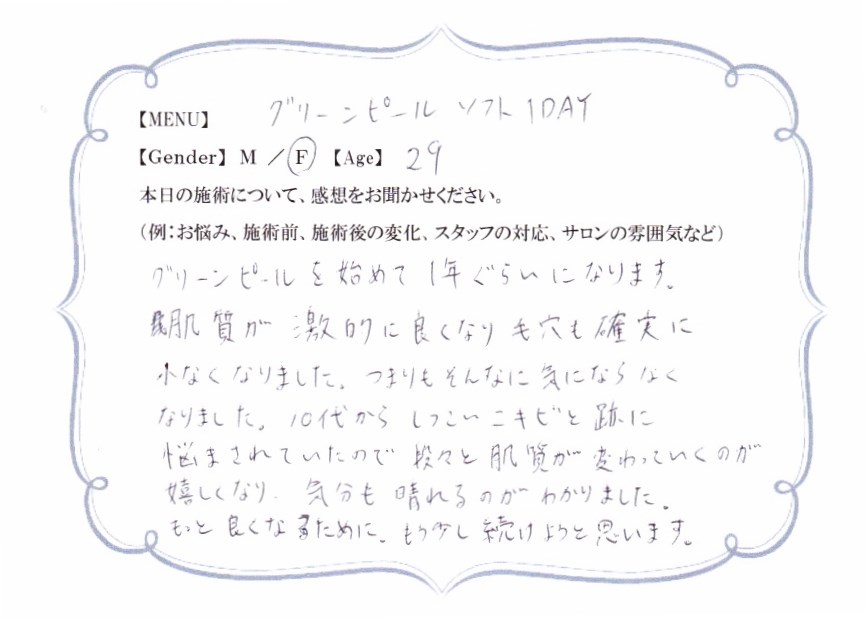 【MENU】 グリーンピール ソフト 1DAY
【Gender】 M ／ F 【Age】 29
本日の施術について、感想をお聞かせください。
（例：お悩み、施術前、施術後の変化、スタッフの対応、サロンの雰囲気など）
グリーンピールを始めて1年ぐらいになります。
肌質が激的に良くなり毛穴も確実に
小なくなりました。つまりもそんなに気にならなく
なりました。10代からしつこいニキビと跡に
悩まされていたので段々と肌質が変わっていくのが
嬉しくなり、気分も晴れるのがわかりました。
もっと良くなるために。もう少し続けようと思います。